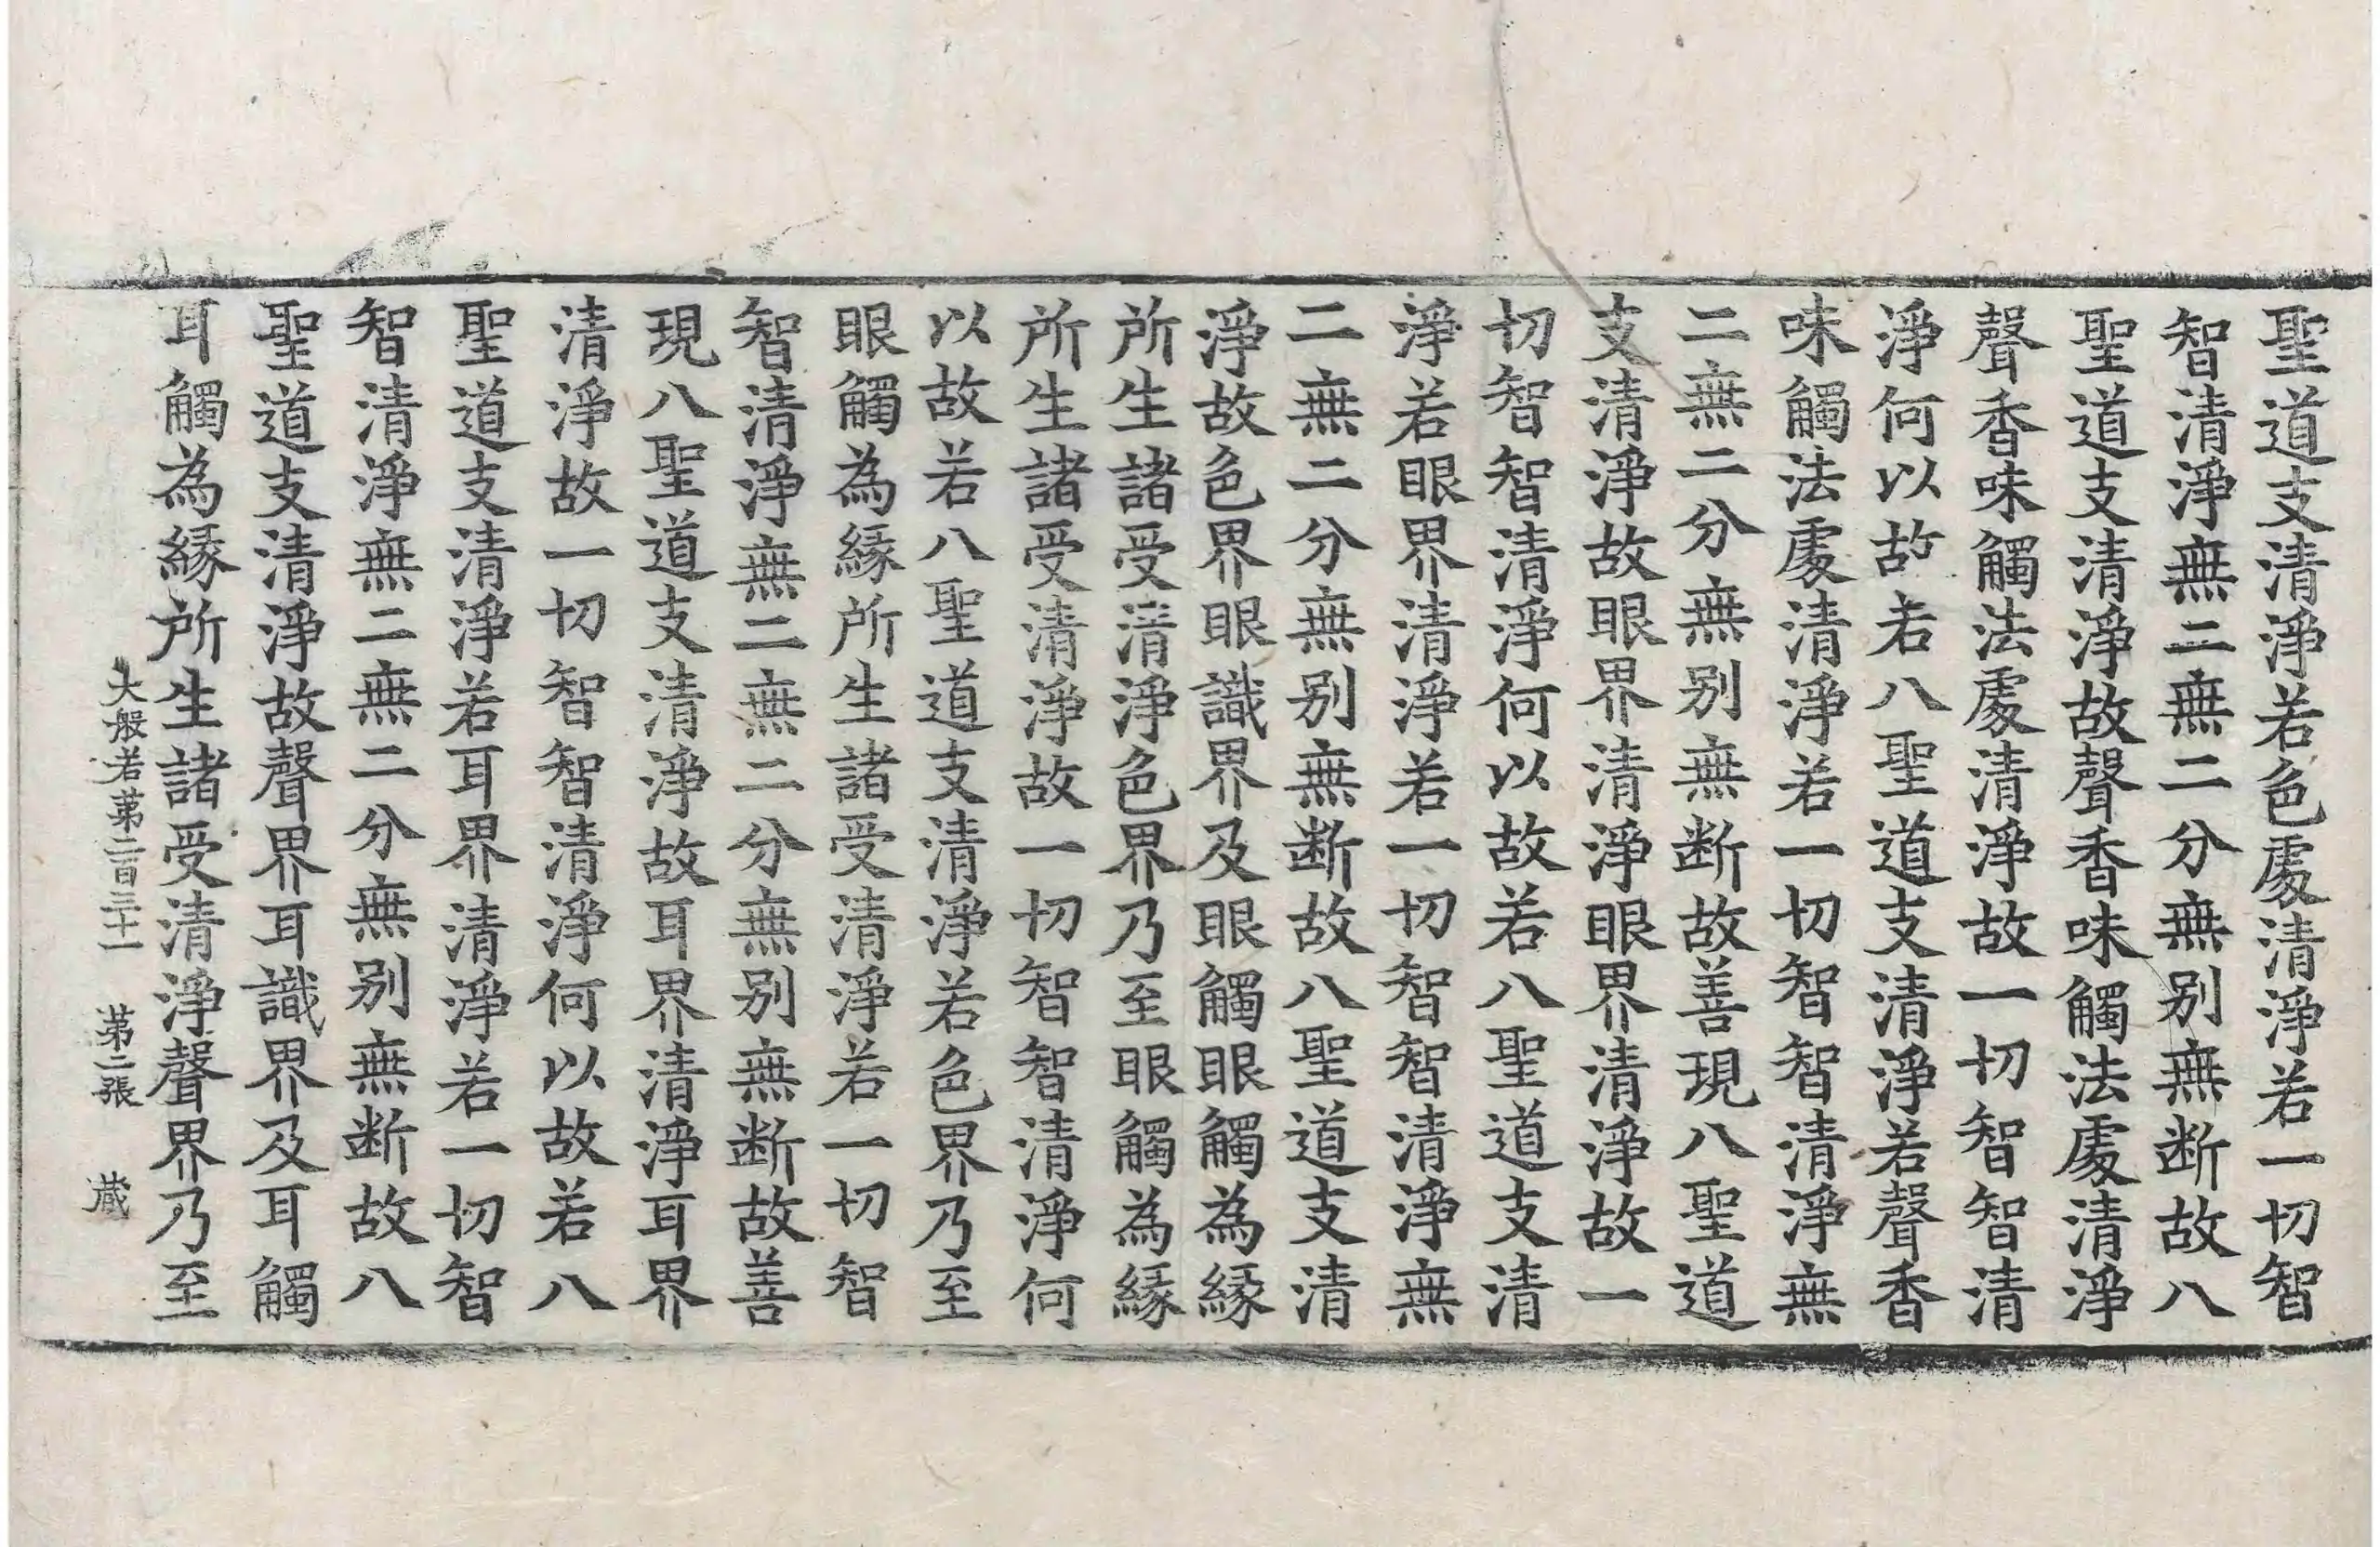 聖道支清淨若色處清淨若一切智
智清淨無二無二分無别無断故八
聖道支清淨故聲香味觸法處清淨
聲香味觸法處清淨故一切智智清
淨何以故若八聖道支清淨若聲香
味觸法處清淨若一切智智清淨無
二無二分無别無断故善現八聖道
支清淨故眼界清淨眼界清淨故一
切智智清淨何以故若八聖道支清
淨若眼界清淨若一切智智清淨無
二無二分無别無断故八聖道支清
淨故色界眼識界及眼觸眼觸為縁
所生諸受清淨色界乃至眼觸為縁
所生諸受清淨故一切智智清淨何
以故若八聖道支清淨若色界乃至
眼觸為縁所生諸受清淨若一切智
智清淨無二無二分無别無断故善
現八聖道支清淨故耳界清淨耳界
清淨故一切智智清淨何以故若八
聖道支清淨若耳界清淨若一切智
智清淨無二無二分無别無断故八
聖道支清淨故聲界耳識界及耳觸
耳觸為縁所生諸受清淨聲界乃至
大般若苐二百三十一 苐二張 蔵